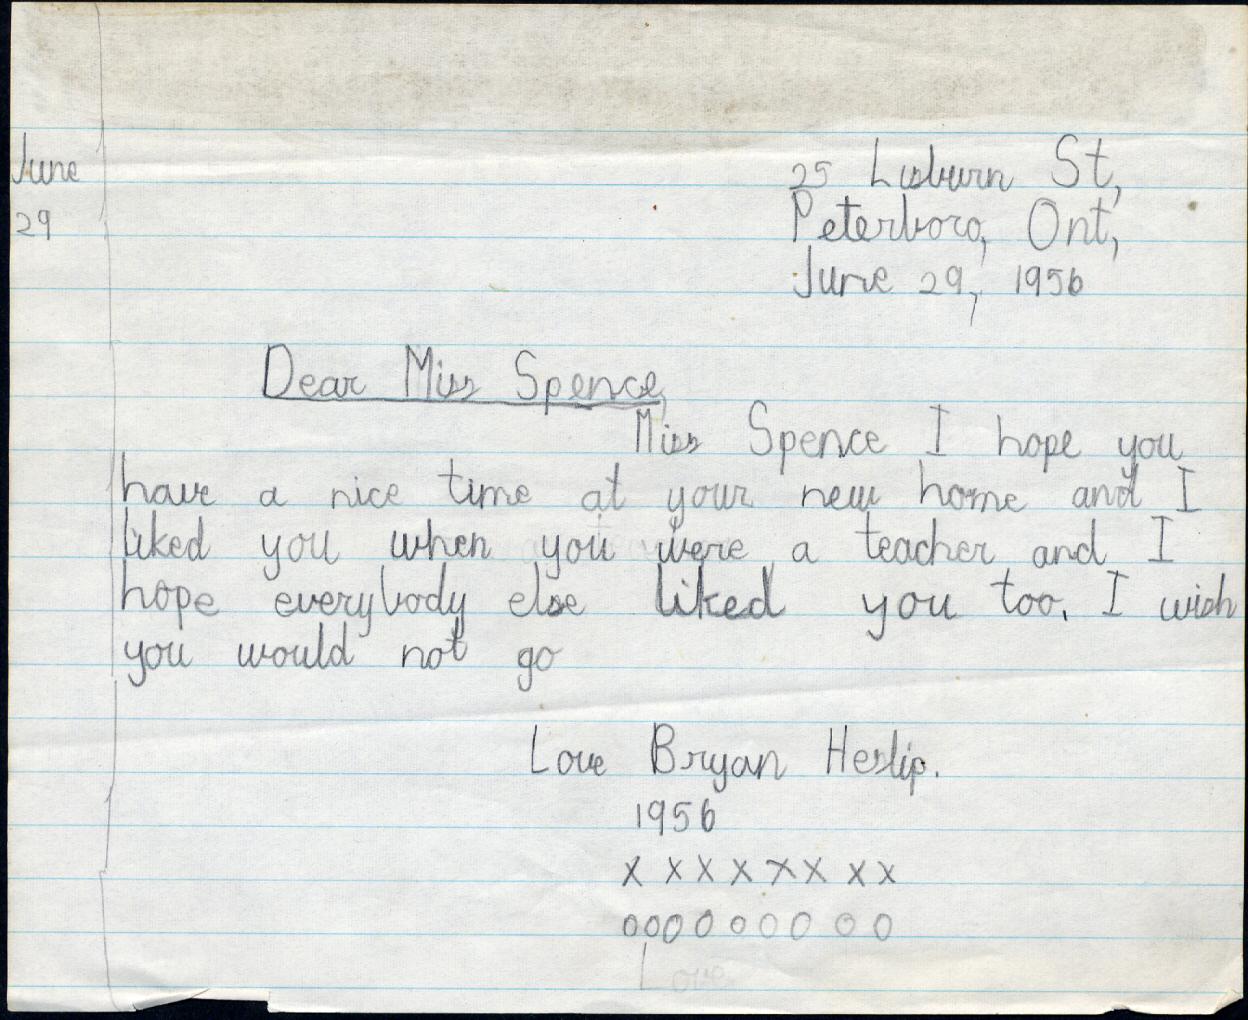 June
29
25 Lisburn St,
Peterboro, Ont,
June 29, 1956
Dear Miss Spence,
Miss Spence I hope you
have a nice time at your new home and I
liked you when you were a teacher and I
hope everybody else liked you too. I wish
you would not go
Love Bryan Heslip.
1956
x x x x x x x x
o o o o o o o o o
Love